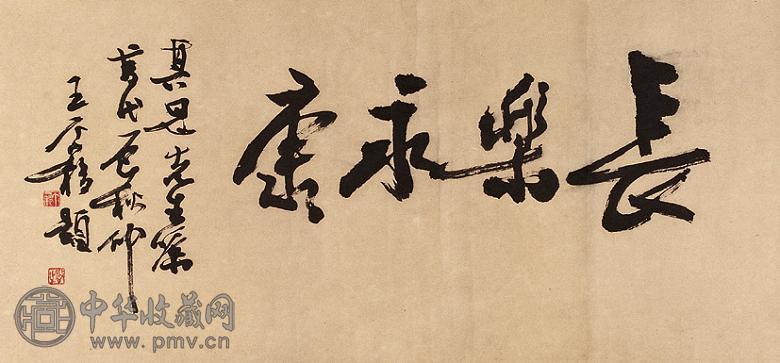 長樂永康
其 先生属
秋仲
王 題
中华收藏网
www.pmv.cn